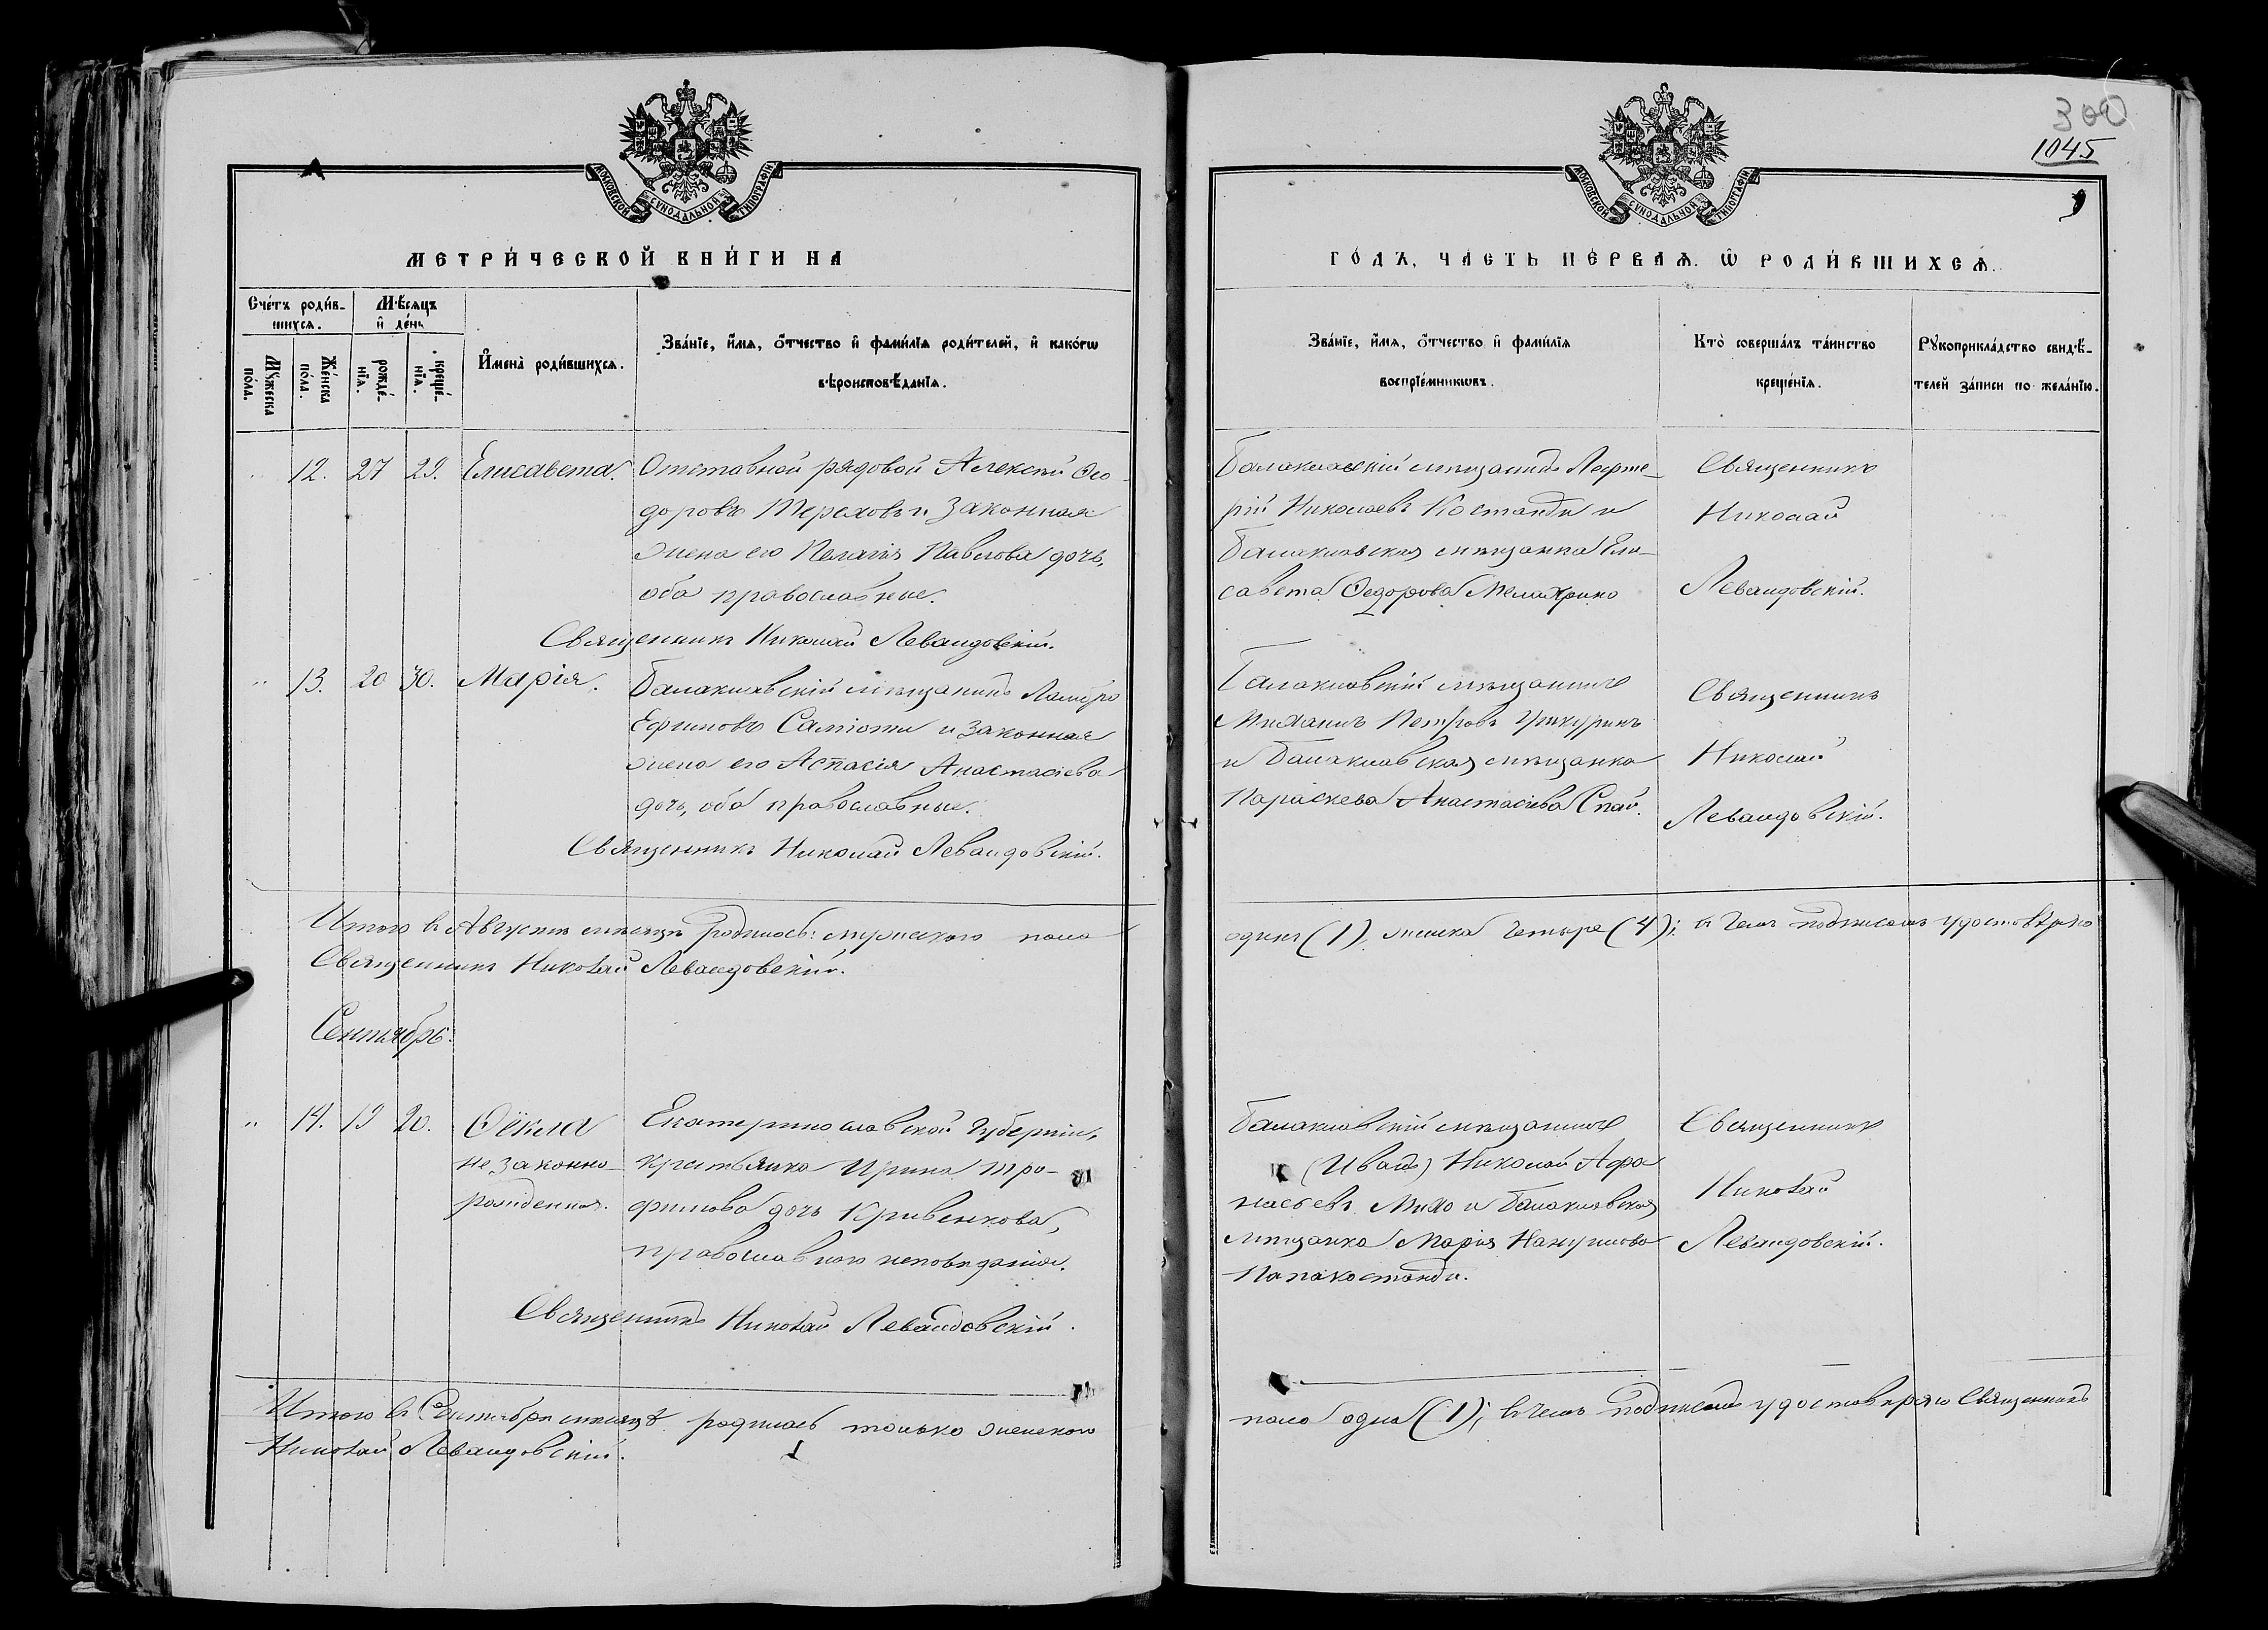 300
1045
МОСКОВСКОЙ СУНОДАЛЬНОЙ ТИПОГРАФІИ
МОСКОВСКОЙ СУНОДАЛЬНОЙ ТИПОГРАФІИ
МЕТРИ́ЧЕСКОЙ КНИ́ГИ НА
ГО́ДЪ, ЧАСТЬ ПЕ́РВАѦ. Ѡ РОДИ́ВШИХСѦ.
Счéтъ роди́в-
шихсѧ.
Мꙋ́жеска
по́ла.
Же́нска
по́ла.
Мѣ́сѧцъ
и҆ де́нь
рожде́-
нїѧ.
креще́-
нїѧ.
И҆мена̀ роди́вшихсѧ.
Зва́нїе, и҆́мѧ, ѻ҆́тчество и҆ фами́лїѧ роди́телей, и҆ како́гѡ
вѣроисповѣ́данїѧ.
Зва́нїе, и҆́мѧ, ѻ҆́тчество и҆ фами́лїѧ
воспрїе́мникѡвъ.
Кто̀ соверша́лъ та́инство
креще́нїѧ.
Рꙋкоприкла́дство свидѣ́-
телей за́писи по жела́нїю.
12. 27 29. Елисавета.
Отставной рядовой Алексѣй Ѳео-
доровъ Тереховъ и законная
жена его Пелагія Павлова дочь,
оба православные.
Священникъ Николай Левандовскій.
Балаклавскій мѣщанинъ Лефте-
рій Николаевъ Костанди и
Балаклавская мѣщанка Ели-
савета Ѳедорова Мелахрино
Священникъ
Николай
Левандовскій.
" 13. 20 30. Марія.
Балаклавскій мѣщанинъ Ламбро
Ефимовъ и законная
жена его Аспасія Анастасіева
дочь, оба православные.
Священникъ Николай Левандовскій.
Балаклавскій мѣщанинъ
Михаилъ Петровъ
и Балаклавская мѣщанка
Параскева Анастасіева Спаи.
Священникъ
Николай
Левандовскій.
Итого въ Августѣ мѣсяцѣ родилось: мужескаго пола
одинъ (1), женска четыре (4); въ чемъ подписомъ удостовѣряю
Священникъ Николай Левандовскій.
Сентябрь.
" 14. 19 20. Ѳёкла
незаконно-
рожденная.
Екатеринославской Губерніи,
крестьянка Ирина Тро-
фимова дочь Кривенкова,
православнаго исповѣданія.
Священникъ Николай Левандовскій.
Балаклавскій мѣщанинъ
(Иванъ) Николай Афа
насьевъ Михо и Балаклавская
мѣщанка Марія
Папакостанди.
Священникъ
Николай
Левандовскій.
Итого въ Сентябрѣ мѣсяцѣ родилось только женскаго
пола одна (1); въ чемъ подписомъ удостовѣряю Священникъ
Николай Левандовскій.